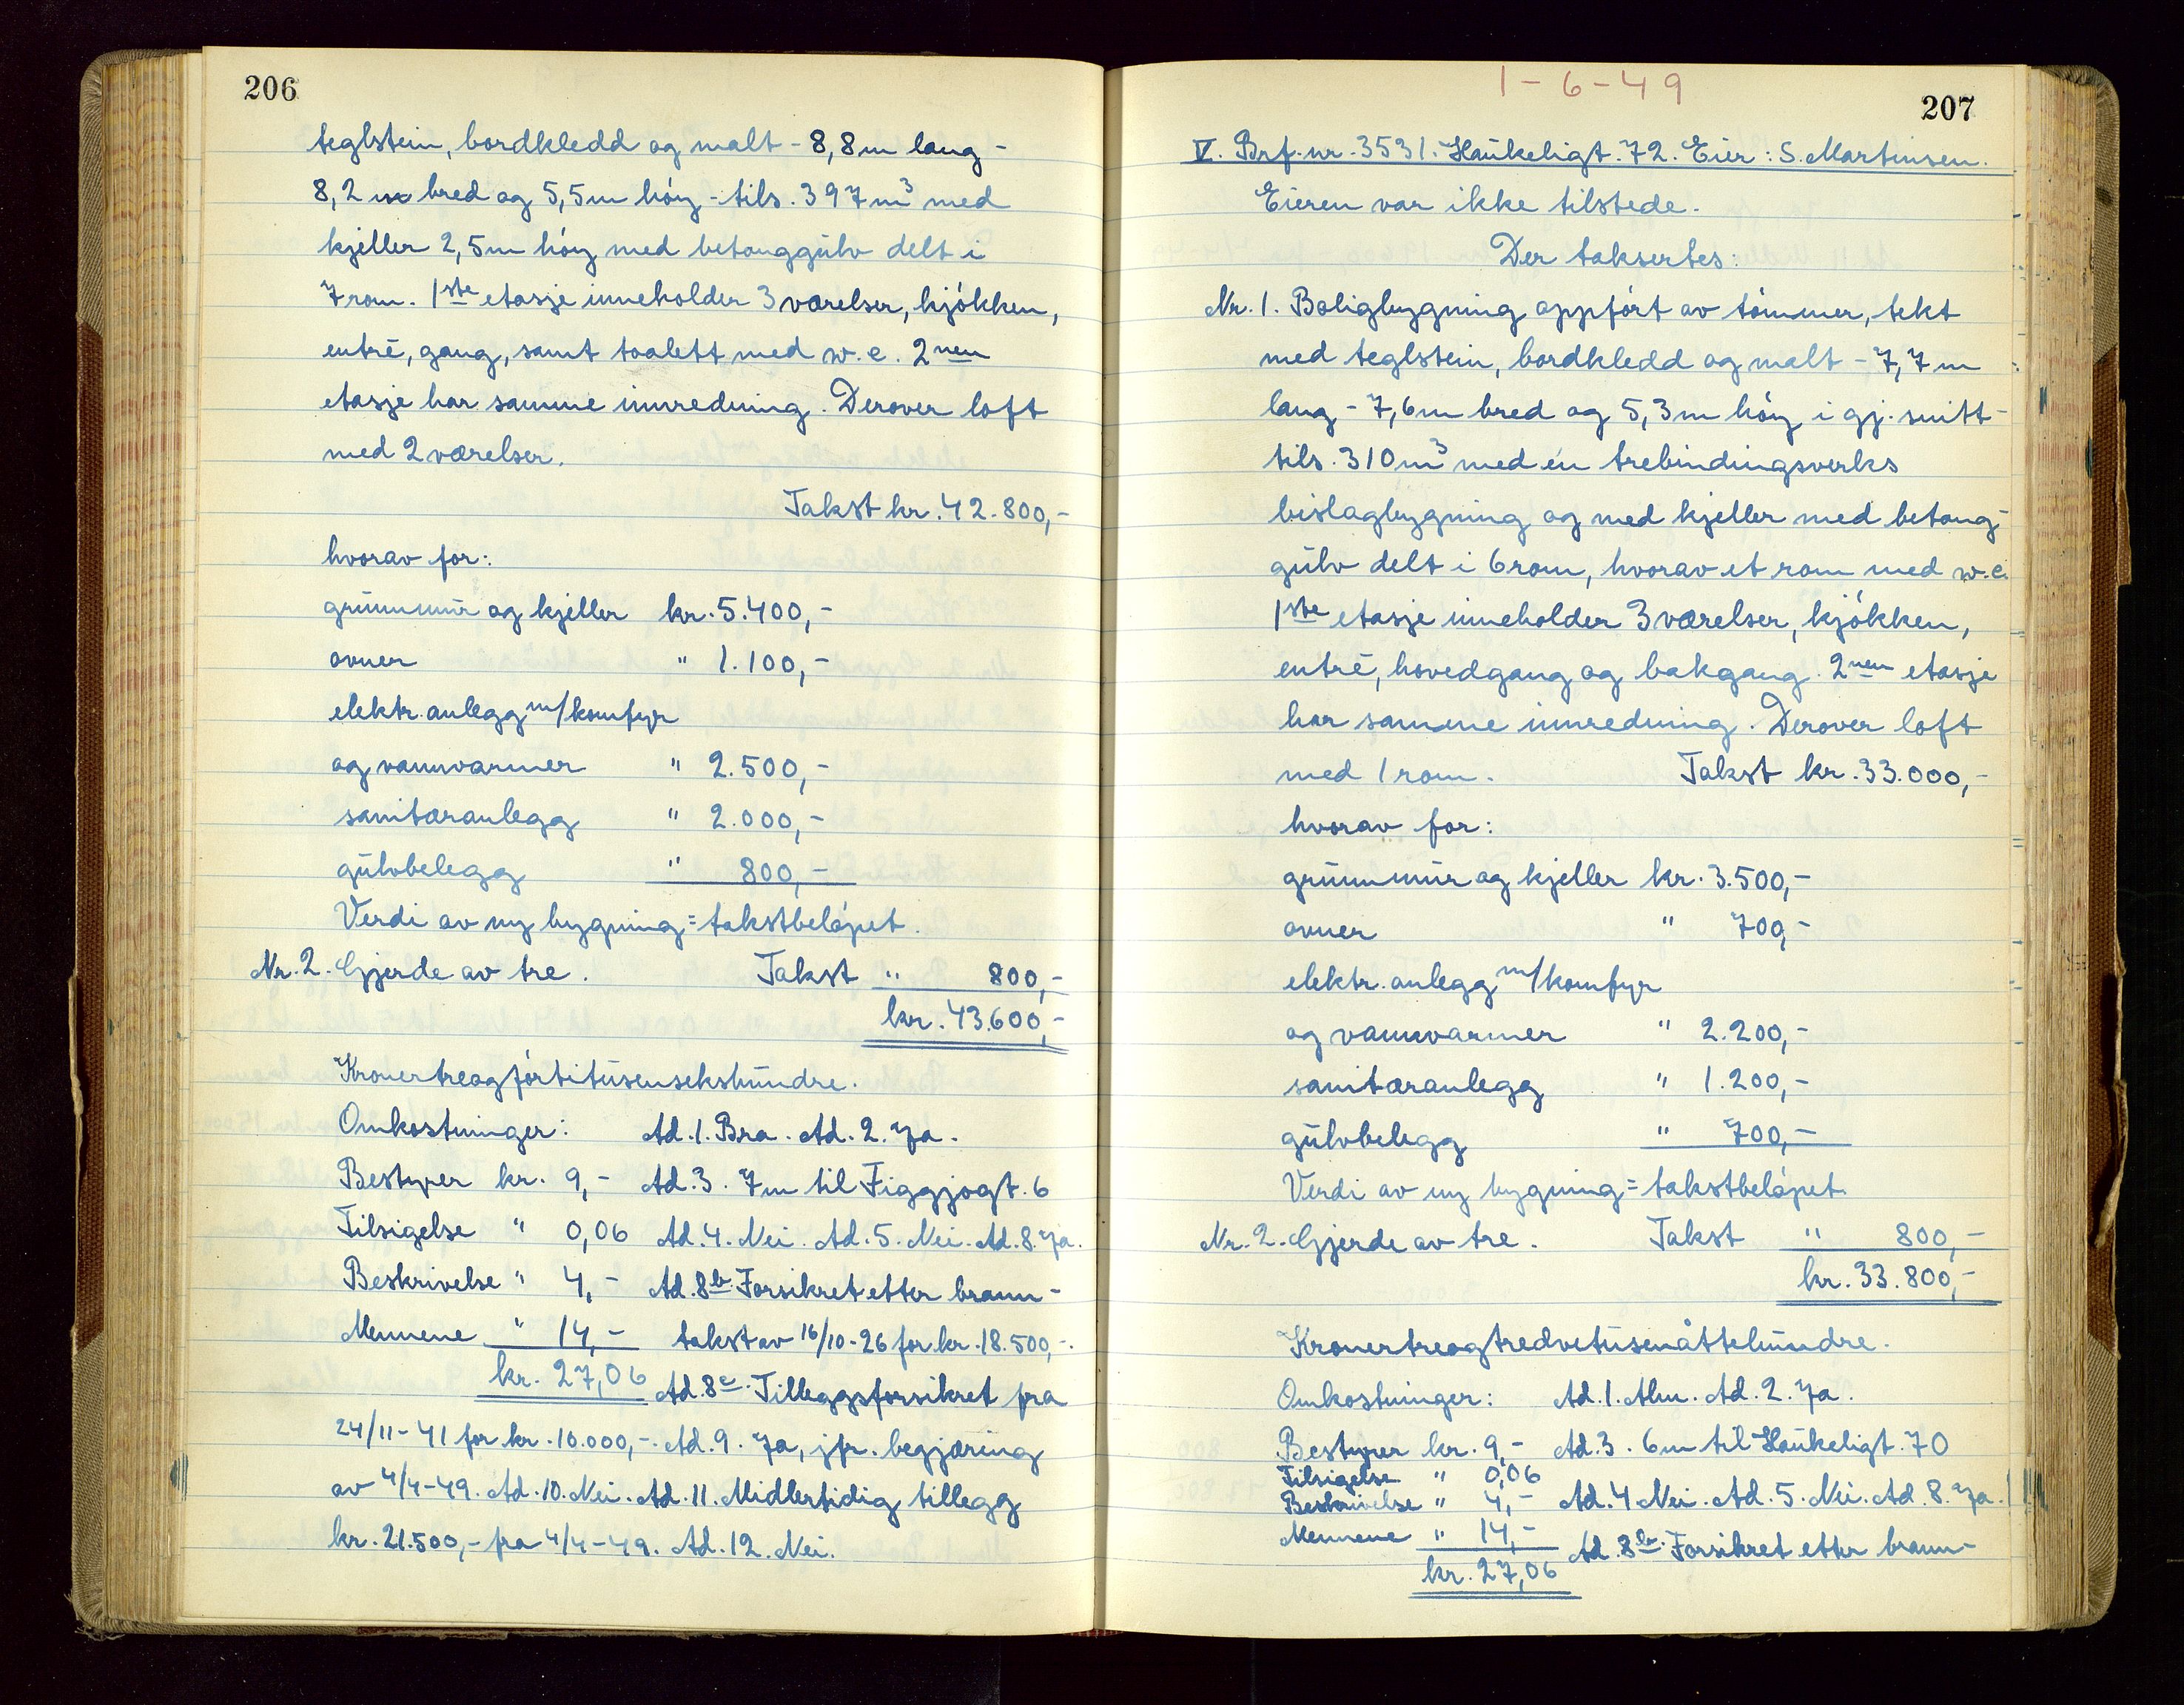 206
teglstein, bordkledd og malt - 8,8m lang -
8,2 m bred og 5,5m høy - tils. 397m³ med
kjeller 2,5m høy med betonggulv delt i
7 rom. 1ste etasje inneholder 3 værelser, kjøkken,
entré, gang, samt toalett med w.c. 2nen
etasje har samme innredning. Derover loft
med 2 værelser.
Takst kr. 42.800,-
hvorav for:
grunnmur og kjeller kr. 5.400,-
ovner " 1.100,-
elektr. anlegg m/komfyr
og vannvarmer " 2.500,-
sanitæranlegg " 2.000,-
gulvbelegg " 800,-
Verdi av ny bygning = takstbeløpet.
Nr. 2. Gjerde av tre. Takst " 800,-
kr. 43.600,-
Kronertreogførtitusensekshundre.
Omkostninger: Ad. 1. Bra. Ad. 2. Ja.
Bestyrer kr. 9,- Ad. 3. 7m til Figgjogt. 6
Tilsigelse " 0,06 Ad. 4. Nei. Ad. 5. Nei. Ad. 8. Ja.
Beskrivelse " 4,- Ad. 8b. Forsikret etter brann-
Mennene " 14,- takst av 16/10-26 for kr. 18.500,-.
kr. 27,06 Ad. 8c. Tilleggsforsikret fra
24/11-41 for kr. 10.000,-. Ad. 9. Ja, jfr. begjæring
av 4/4-49. Ad. 10. Nei. Ad. 11. Midlertidig tillegg
kr. 21.500,- fra 4/4-49. Ad. 12. Nei.
1-6-49
207
V. Brf. nr. 3531. Haukeligt. 72. Eier: S. Martinsen.
Eieren var ikke tilstede.
Der taksertes:
Nr. 1. Boligbygning oppført av tømmer, tekt
med teglstein, bordkledd og malt - 7,7m
lang - 7,6m bred og 5,3m høy i gj. snitt -
tils. 310m³ med én trebindingsverks
bislagbygning og med kjeller med betong-
gulv delt i 6 rom, hvorav et rom med w.c.
1ste etasje inneholder 3 værelser, kjøkken,
entré, hovedgang og bakgang. 2nen etasje
har samme innredning. Derover loft
med 1 rom. Takst kr. 33.000,-
hvorav for:
grunnmur og kjeller kr. 3.500,-
ovner " 700,-
elektr. anlegg m/komfyr
og vannvarmer " 2.200,-
sanitæranlegg " 1.200,-
gulvbelegg " 700,-
Verdi av ny bygning = takstbeløpet.
Nr. 2. Gjerde av tre. Takst " 800,-
kr. 33.800,-
Kronertreogtredvetusenåttehundre.
Omkostninger: Ad. 1. Alm. Ad. 2. Ja.
Bestyrer kr. 9,- Ad. 3. 6m til Haukeligt. 70
Tilsigelse " 0,06
Beskrivelse " 4,- Ad. 4 Nei. Ad. 5. Nei. Ad. 8. Ja.
Mennene " 14,- Ad. 8b. Forsikret etter brann-
kr. 27,06